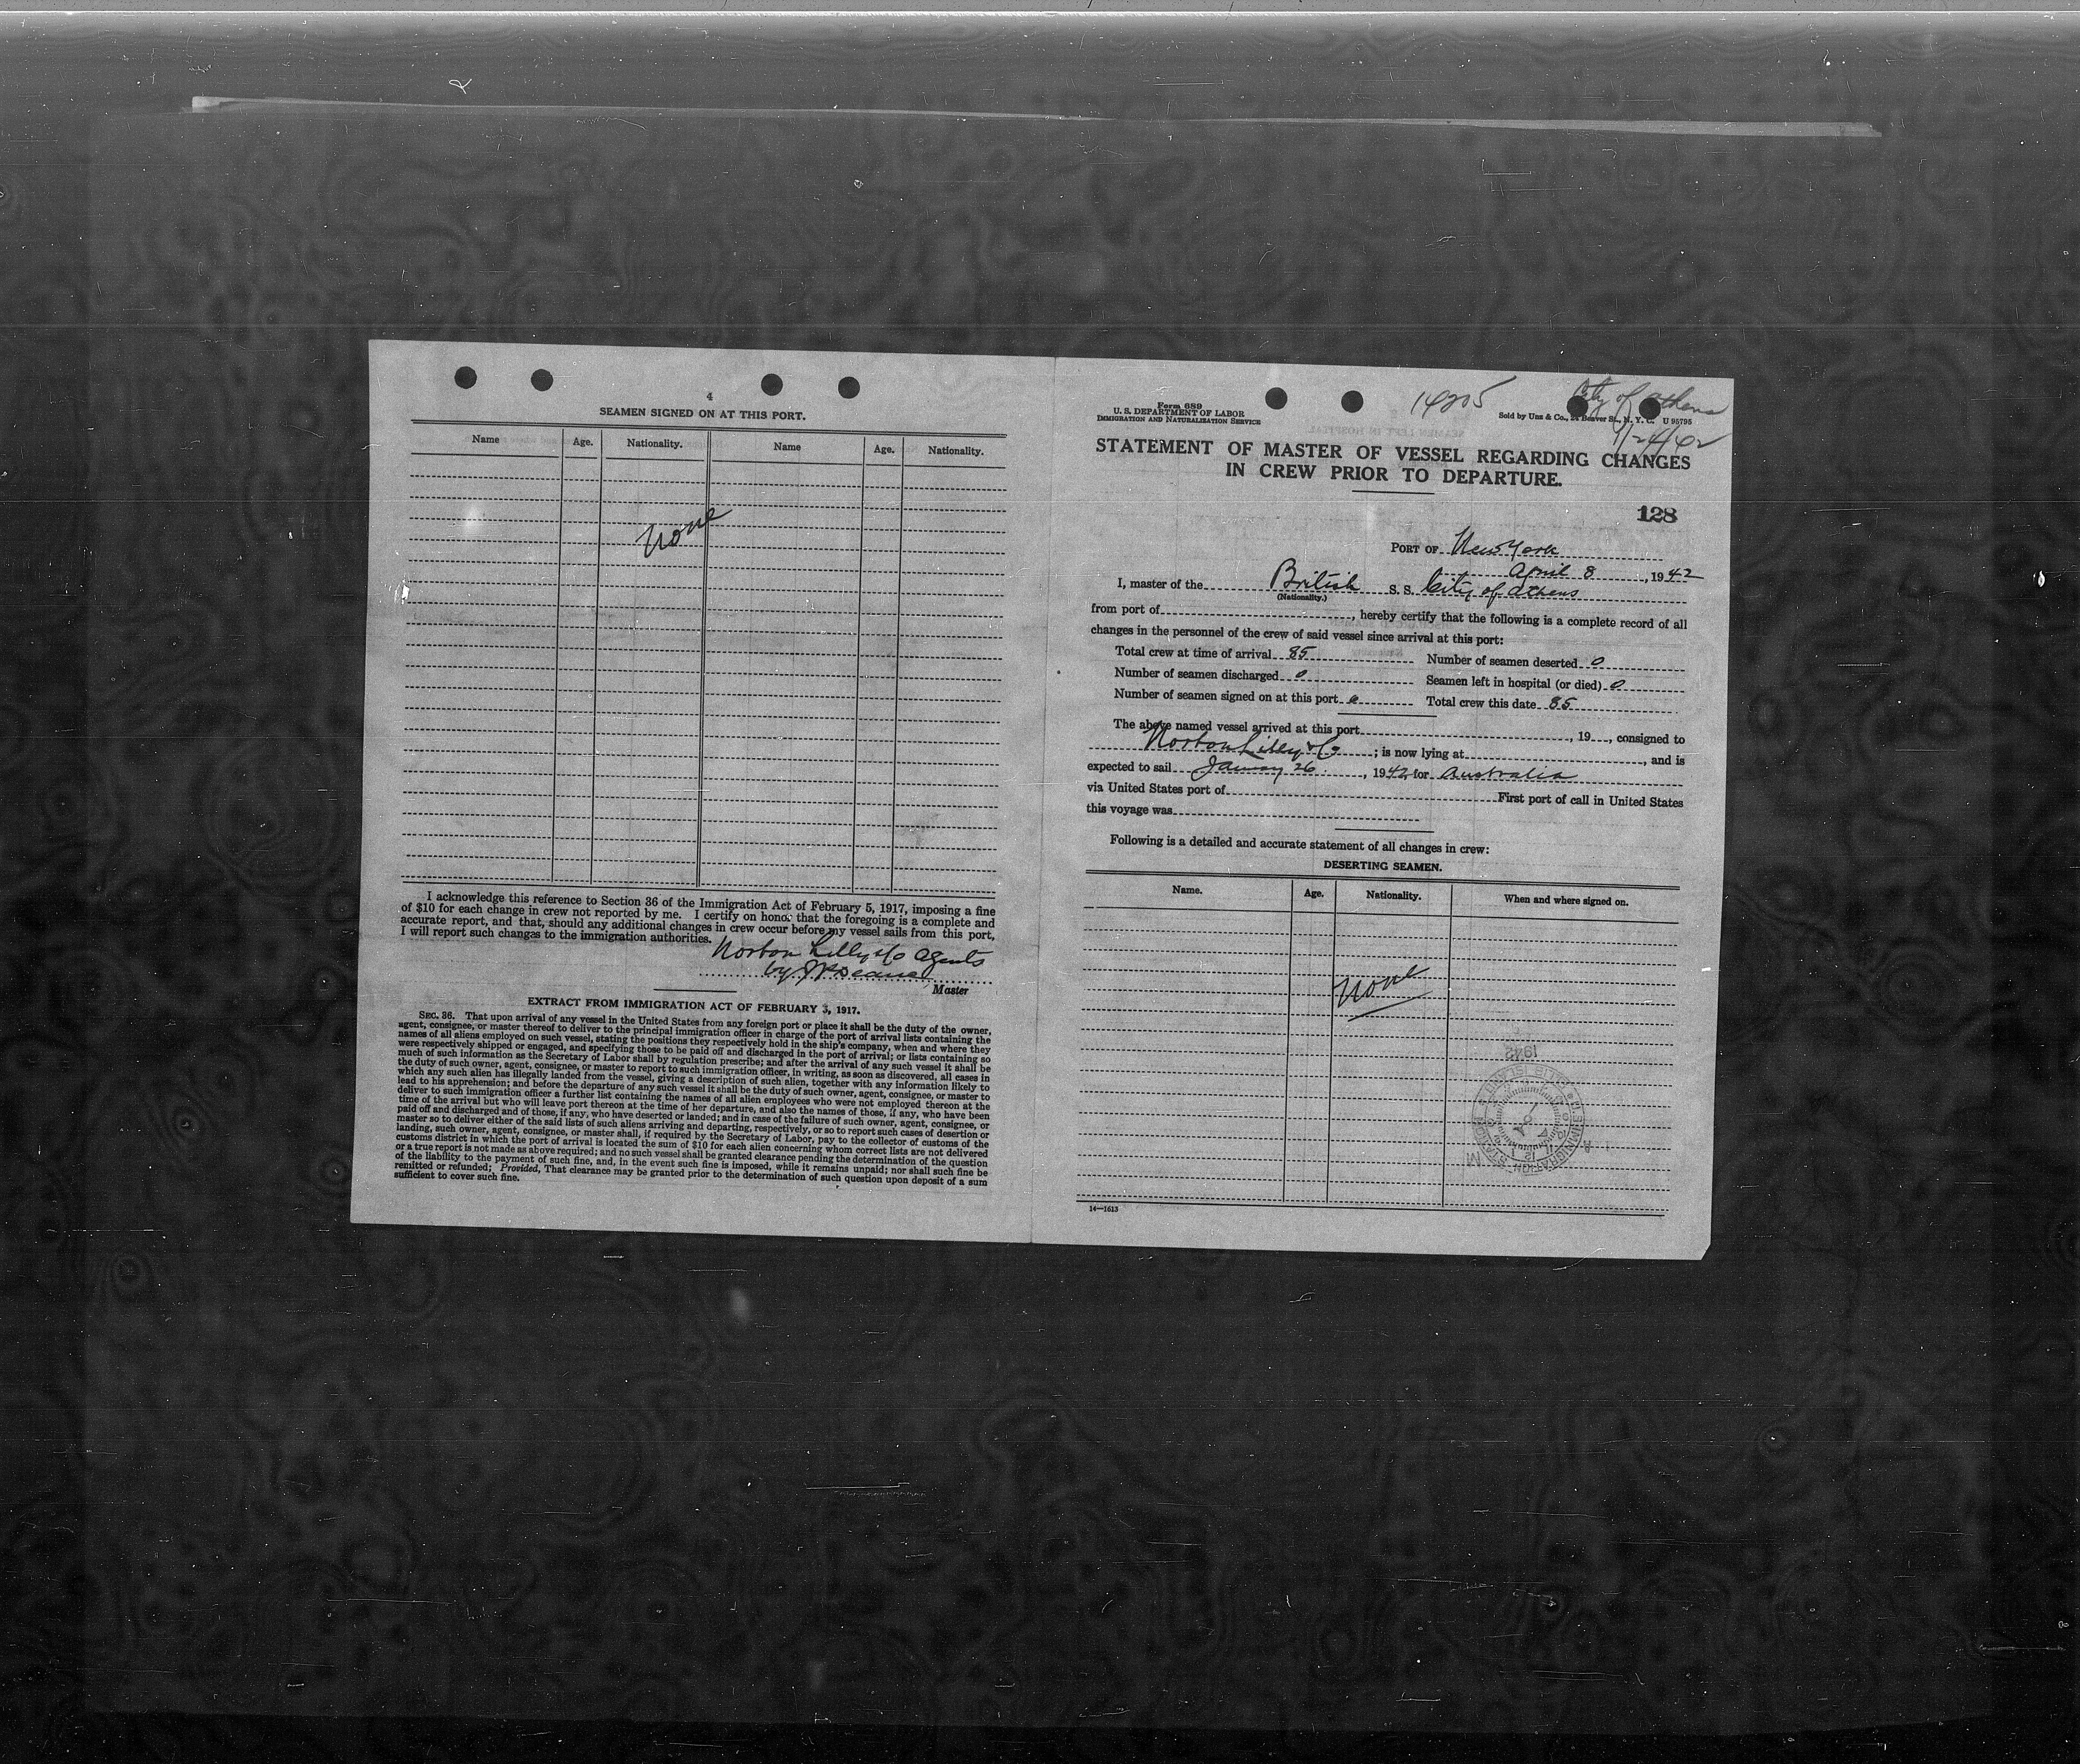 4
SEAMEN SIGNED ON AT THIS PORT.
Name Age. Nationality. Name Age. Nationality.
None
I acknowledge this reference to Section 36 of the Immigration Act of February 5, 1917, imposing a fine
of $10 for each change in crew not reported by me. I certify on honor that the foregoing is a complete and
accurate report, and that, should any additional changes in crew occur before my vessel sails from this port,
I will report such changes to the immigration authorities.
Norton Lilly & Co Agents
by
Master
EXTRACT FROM IMMIGRATION ACT OF FEBRUARY 5, 1917.
SEC. 36. That upon arrival of any vessel in the United States from any foreign port or place it shall be the duty of the owner,
agent, consignee, or master thereof to deliver to the principal immigration officer in charge of the port of arrival lists containing the
names of all aliens employed on such vessel, stating the positions they respectively hold in the ship's company, when and where they
were respectively shipped or engaged, and specifying those to be paid off and discharged in the port of arrival; or lists containing so
much of such information as the Secretary of Labor shall by regulation prescribe; and after the arrival of any such vessel it shall be
the duty of such owner, agent, consignee, or master to report to such immigration officer, in writing, as soon as discovered, all cases in
which any such alien has illegally landed from the vessel, giving a description of such alien, together with any information likely to
lead to his apprehension; and before the departure of any such vessel it shall be the duty of such owner, agent, consignee, or master to
deliver to such immigration officer a further list containing the names of all alien employees who were not employed thereon at the
time of the arrival but who will leave port thereon at the time of her departure, and also the names of those, if any, who have been
paid off and discharged and of those, if any, who have deserted or landed; and in case of the failure of such owner, agent, consignee, or
master so to deliver either of the said lists of such aliens arriving and departing, respectively, or so to report such cases of desertion or
landing, such owner, agent, consignee, or master shall, if required by the Secretary of Labor, pay to the collector of customs of the
customs district in which the port of arrival is located the sum of $10 for each alien concerning whom correct lists are not delivered
or a true report is not made as above required; and no such vessel shall be granted clearance pending the determination of the question
of the liability to the payment of such fine, and, in the event such fine is imposed, while it remains unpaid; nor shall such fine be
remitted or refunded; Provided, That clearance may be granted prior to the determination of such question upon deposit of a sum
sufficient to cover such fine.
Form 689
U. S. DEPARTMENT OF LABOR
IMMIGRATION AND NATURALIZATION SERVICE
14205
City of Athens
Sold by Unz & Co., 24 Beaver St., N. Y. C. U 95795
1/24/42
STATEMENT OF MASTER OF VESSEL REGARDING CHANGES
IN CREW PRIOR TO DEPARTURE.
128
PORT OF New York
April 8, 1942
I, master of the British S. S. City of Athens
(Nationality.)
from port of , hereby certify that the following is a complete record of all
changes in the personnel of the crew of said vessel since arrival at this port:
Total crew at time of arrival 85 Number of seamen deserted 0
Number of seamen discharged 0 Seamen left in hospital (or died) 0
Number of seamen signed on at this port 0 Total crew this date 85
The above named vessel arrived at this port , 19 , consigned to
Norton Lilly & Co ; is now lying at , and is
expected to sail January 26 , 1942 for Australia
via United States port of First port of call in United States
this voyage was
Following is a detailed and accurate statement of all changes in crew:
DESERTING SEAMEN.
Name. Age. Nationality. When and where signed on.
None
1942
14—1613